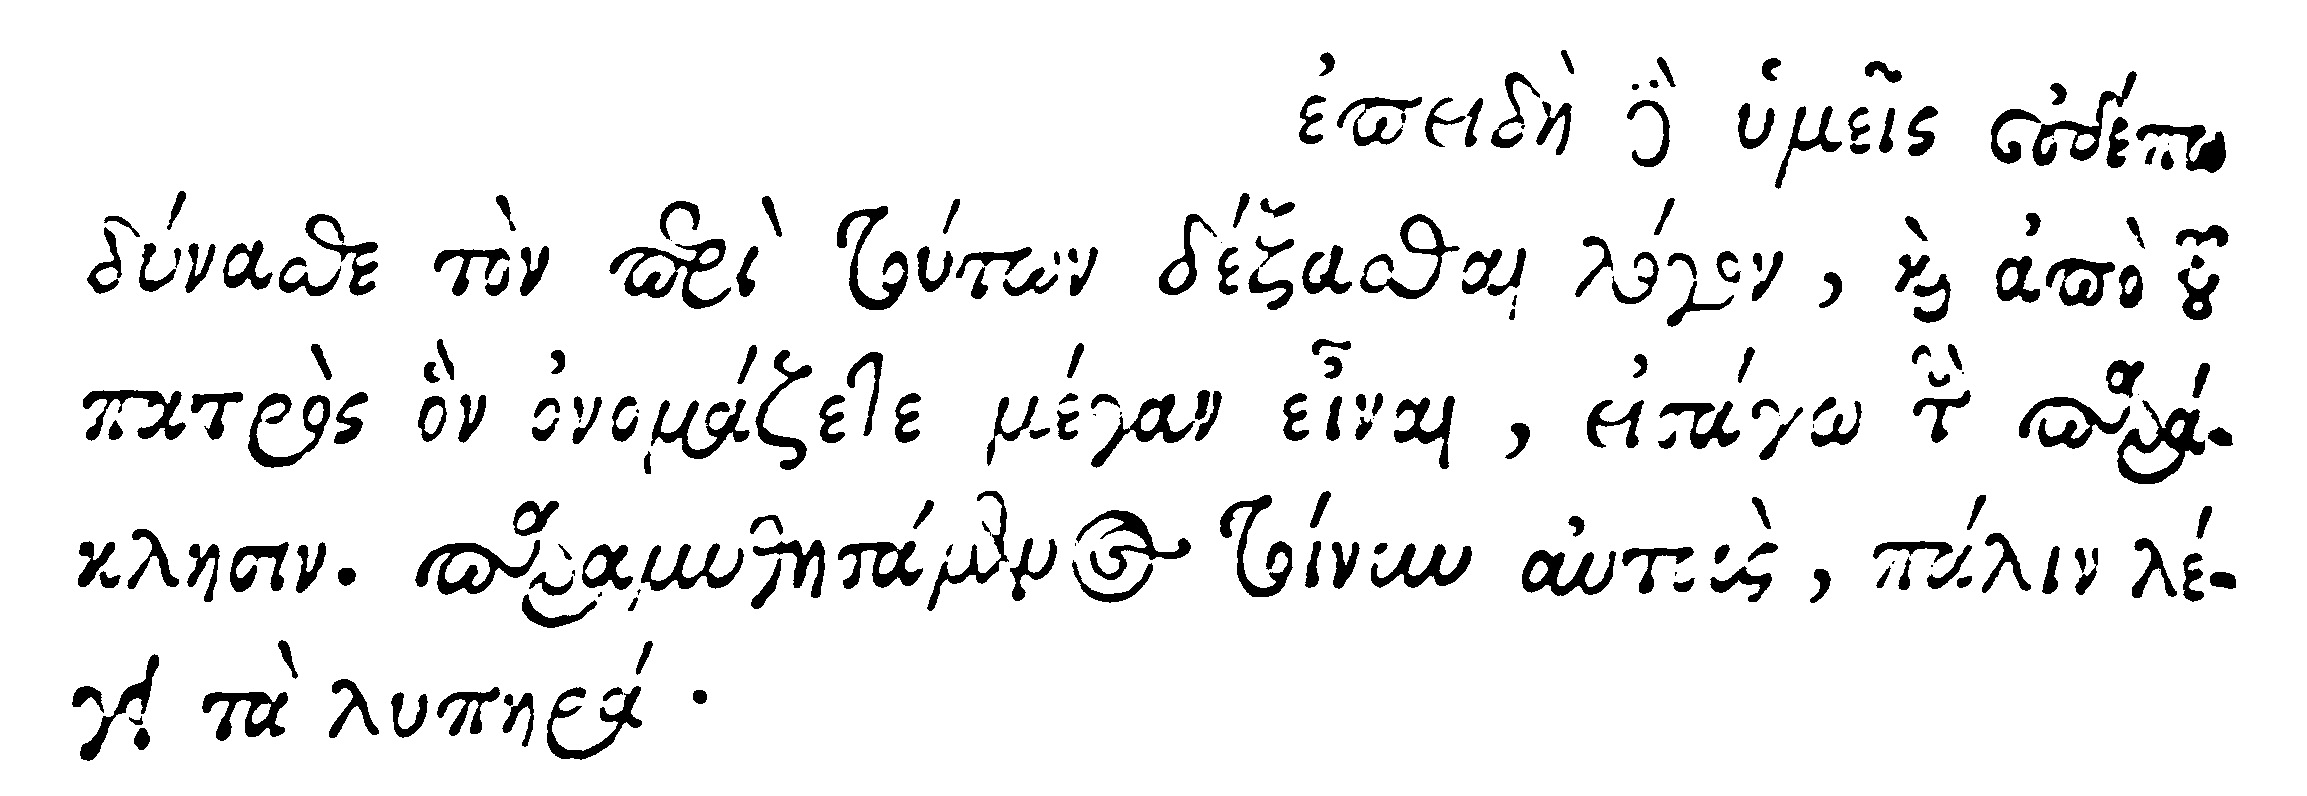 ἐπειδὴ γὰρ ὑμεῖς οὐδέπω
δύνασθε τὸν περὶ τούτων δέξασθαι λόγον, καὶ ἀπὸ τοῦ
πατρὸς ὃν ὀνομάζετε μέγαν εἶναι, ἐπάγω τὴν παρά-
κλησιν. παραμυθησάμενος τοίνυν αὐτοὺς, πάλιν λέ-
γει τὰ λυπηρά.